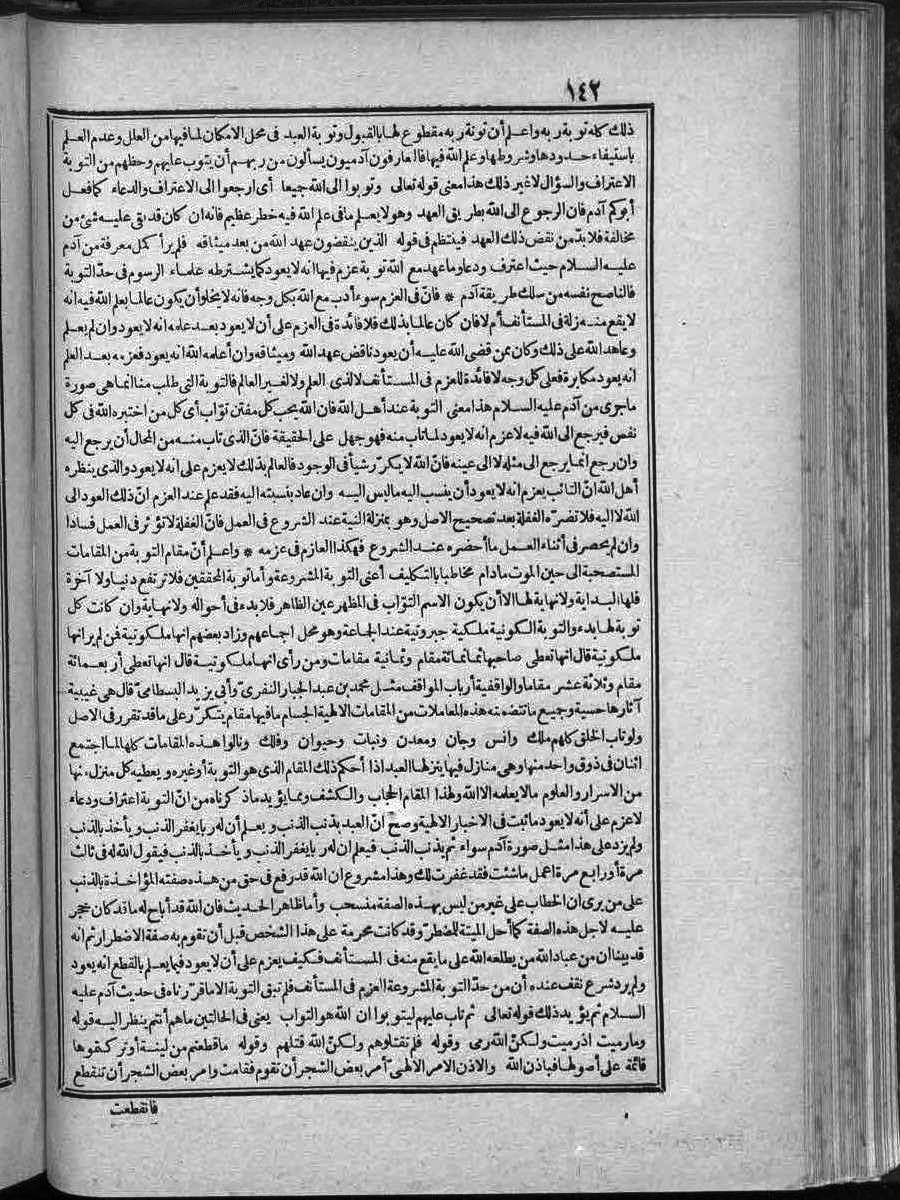 ١٤٢
ذلك كله توبة ربه واعلم أن توبة ربه مقطوع لها بالقبول وتوبة العبد فى محل الامكان لما فيها من العلل وعدم العلم
باستيفاء حدودها وشروطها وعلم الله فيها فالعارفون آدميون يسألون من ربهم أن يتوب عليهم وحظهم من التوبة
الاعتراف والسؤال لا غير ذلك هذا معنى قوله تعالى وتوبوا الى الله جيعا أى ارجعوا الى الاعتراف والدعاء كما فعل
أبوكم آدم فان الرجوع الى الله بطريق العهد وهو لا يعلم ما فى علم الله فيه خطر عظيم فانه ان كان قد بقى عليه شئ من
مخالفة فلا بدّ من نقض ذلك العهد فينتظم فى قوله الذين ينقضون عهد الله من بعد ميثاقه فلم ير أكمل معرفة من آدم
عليه السلام حيث اعترف ودعا وما عهد مع الله توبة عزم فيها انه لا يعود كما يشترطه علماء الرسوم فى حدّ التوبة
فالناصح نفسه من سلك طريقة آدم * فانّ فى العزم سوء أدب مع الله بكل وجه فانه لا يخلو أن يكون عالما بعلم الله فيه انه
لا يقع منه زلة فى المستأنف أم لا فان كان عالما بذلك فلا فائدة فى العزم على أن لا يعود بعد علمه انه لا يعود وان لم يعلم
وعاهد الله على ذلك وكان ممن قضى الله عليه أن يعود ناقض عهد الله وميثاقه وان أعلمه الله انه يعود فعزمه بعد العلم
انه يعود مكابرة فعلى كل وجه لا فائدة للعزم فى المستأنف لا لذى العلم ولا لغير العالم فالتوبة التى طلب منا انما هى صورة
ما جرى من آدم عليه السلام هذا معنى التوبة عند أهل الله فان الله يحب كل مفتن توّاب أى كل من اختبره الله فى كل
نفس فيرجع الى الله فيه لا عزم انه لا يعود لما تاب منه فهو جهل على الحقيقة فانّ الذى تاب منه من المحال أن يرجع اليه
وان رجع انما يرجع الى مثله لا الى عينه فانّ الله لا يكرّر شيأ فى الوجود فالعالم بذلك لا يعزم على انه لا يعود والذى ينظره
أهل الله انّ التائب يعزم انه لا يعود أن ينسب اليه ما ليس اليه وان عاد بنسبته اليه فقد علم عند العزم انّ ذلك العود الى
الله لا اليه فلا تضرّه الغفلة بعد تصحيح الاصل وهو بمنزلة النية عند الشروع فى العمل فانّ الغفلة لا تؤثر فى العمل فسادا
وان لم يحضر فى أثناء العمل ما أحضره عند الشروع فهكذا العازم فى عزمه * واعلم أنّ مقام التوبة من المقامات
المستصحبة الى حين الموت مادام مخاطبا بالتكليف أعنى التوبة المشروعة وأما توبة المحققين فلا ترتفع دنيا ولا آخرة
فلها البداية ولا نهاية لها الا أن يكون الاسم التوّاب فى المظهر عين الظاهر فلا بدء فى أحواله ولا نهاية وان كانت كل
توبة لها بدء والتوبة الكونية ملكية جبروتية عند الجماعة وهو محل اجماعهم وزاد بعضهم انها ملكوتية فمن لم ير انها
ملكوتية قال انها تعطى صاحبها ثمانمائة مقام وثمانية مقامات ومن رأى انها ملكوتية قال انها تعطى أربعمائة
مقام وثلاثة عشر مقاما والواقفية أرباب المواقف مثل محمد بن عبد الجبار النفرىّ وأبى يزيد البسطامىّ قال هى غيبية
آثارها حسية وجميع ما تتضمنه هذه المعاملات من المقامات الالهية الجسام ما فيها مقام يتكرّر على ما قد تقرر فى الاصل
ولو تاب الخلق كلهم ملك وانس وجان ومعدن ونبات وحيوان وفلك ونالوا هذه المقامات كلها لما اجتمع
اثنان فى ذوق واحد منها وهى منازل فيها ينزلها العبد اذا أحكم ذلك المقام الذى هو التوبة أو غيره ويعطيه كل منزل منها
من الاسرار والعلوم ما لا يعلمه الا الله ولهذا المقام الحجاب والكشف ومما يؤيد ما ذكرناه من انّ التوبة اعتراف ودعاء
لا عزم على أنه لا يعود ما ثبت فى الاخبار الالهية وصحّ انّ العبد يذنب الذنب ويعلم أن له ربا يغفر الذنب ويأخذ بالذنب
ولم يزد على هذا مثل صورة آدم سواء ثم يذنب الذنب فيعلم ان له ربا يغفر الذنب ويأخذ بالذنب فيقول الله له فى ثالث
مرة أو رابع مرة اعمل ما شئت فقد غفرت لك وهذا مشروع ان الله قد رفع فى حق من هذه صفته المؤاخذة بالذنب
على من يرى ان الخطاب على غير من ليس بهذه الصفة منسحب وأما ظاهر الحديث فان الله قد أباح له ما قد كان حجر
عليه لاجل هذه الصفة كما أحل الميتة للمضطرّ وقد كانت محرمة على هذا الشخص قبل أن تقوم به صفة الاضطرار ثم انه
قد بينا ان من عباد الله من يطلعه الله على ما يقع منه فى المستأنف فكيف يعزم على أن لا يعود فيما يعلم بالقطع انه يعود
ولم يرد شرع نقف عنده أن من حدّ التوبة المشروعة العزم فى المستأنف فلم تبق التوبة الا ما قررناه فى حديث آدم عليه
السلام ثم يؤيد ذلك قوله تعالى ثم تاب عليهم ليتوبوا ان الله هو التواب يعنى فى الحالتين ما هم أنتم ينظر اليه قوله
وما رميت اذ رميت ولكنّ الله رمى وقوله فلم تقتلوهم ولكنّ الله قتلهم وقوله ما قطعتم من لينة أو تركتموها
قائمة على أصولها فباذن الله والاذن الامر الالهىّ أمر بعض الشجر أن تقوم فقامت وأمر بعض الشجر أن تنقطع
فانقطعت